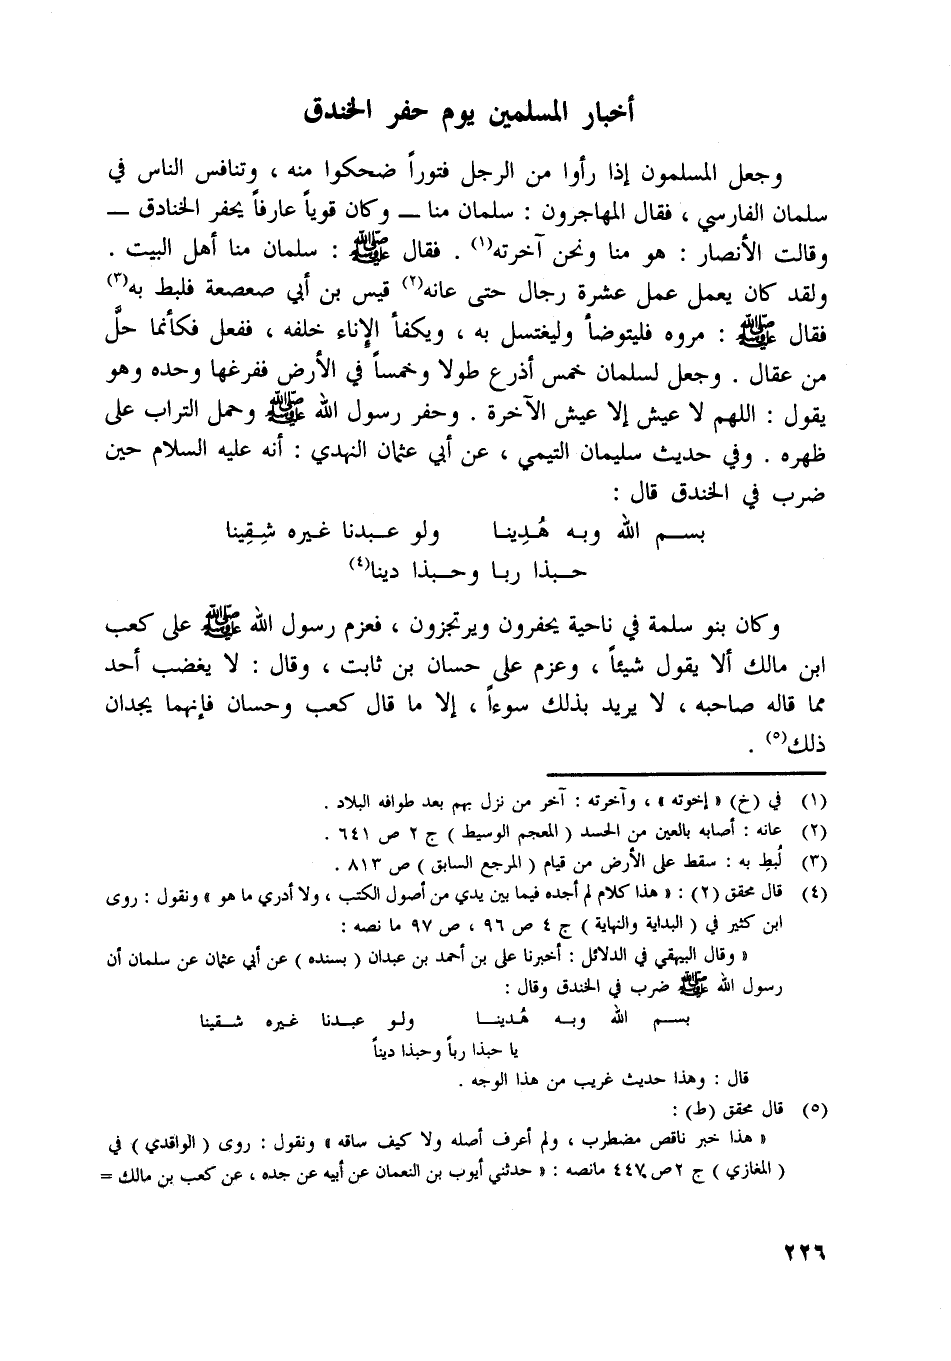 أخبار المسلمين يوم حفر الخندق
وجعل المسلمون إذا رأوا من الرجل فتوراً ضحكوا منه ، وتنافس الناس في
سلمان الفارسي ، فقال المهاجرون : سلمان منا ــ وكان قوياً عارفاً يحفر الخنادق ــ
وقالت الأنصار : هو منا ونحن آخرته(١) . فقال ﷺ : سلمان منا أهل البيت .
ولقد كان يعمل عمل عشرة رجال حتى عانه(٢) قيس بن أبي صعصعة فلبط به(٣)
فقال ﷺ : مروه فليتوضأ وليغتسل به ، ويكفأ الإناء خلفه ، ففعل فكأنما حلَّ
من عقال . وجعل لسلمان خمس أذرع طولا وخمساً في الأرض ففرغها وحده وهو
يقول : اللهم لا عيش إلا عيش الآخرة . وحفر رسول الله ﷺ وحمل التراب على
ظهره . وفي حديث سليمان التيمي ، عن أبي عثمان النهدي : أنه عليه السلام حين
ضرب في الخندق قال :
بسـم الله وبـه هُدِينـا ولو عـبدنا غـيره شِقِينا
حـبذا ربـا وحـبذا دينا(٤)
وكان بنو سلمة في ناحية يحفرون ويرتجزون ، فعزم رسول الله ﷺ على كعب
ابن مالك ألا يقول شيئاً ، وعزم على حسان بن ثابت ، وقال : لا يغضب أحد
مما قاله صاحبه ، لا يريد بذلك سوءاً ، إلا ما قال كعب وحسان فإنهما يجدان
ذلك(٥) .
(١) في (خ) « إخوته » ، وآخرته : آخر من نزل بهم بعد طوافه البلاد .
(٢) عانه : أصابه بالعين من الحسد ( المعجم الوسيط ) ج ٢ ص ٦٤١ .
(٣) لُبِطِ به : سقط على الأرض من قيام ( المرجع السابق ) ص ٨١٣ .
(٤) قال محقق (٢) : « هذا كلام لم أجده فيما بين يدي من أصول الكتب ، ولا أدري ما هو » ونقول : روى
ابن كثير في ( البداية والنهاية ) ج ٤ ص ٩٦ ، ص ٩٧ ما نصه :
« وقال البيهقي في الدلائل : أخبرنا علي بن أحمد بن عبدان ( بسنده ) عن أبي عثمان عن سلمان أن
رسول الله ﷺ ضرب في الخندق وقال :
بسـم الله وبـه هُدينـا ولـو عبـدنا غـيره شـقينا
يا حبذا رباً وحبذا ديناً
قال : وهذا حديث غريب من هذا الوجه .
(٥) قال محقق (ط) :
« هذا خبر ناقص مضطرب ، ولم أعرف أصله ولا كيف ساقه » ونقول : روى ( الواقدي ) في
( المغازي ) ج ٢ ص ٤٤٧ مانصه : « حدثني أيوب بن النعمان عن أبيه عن جده ، عن كعب بن مالك =
٢٢٦